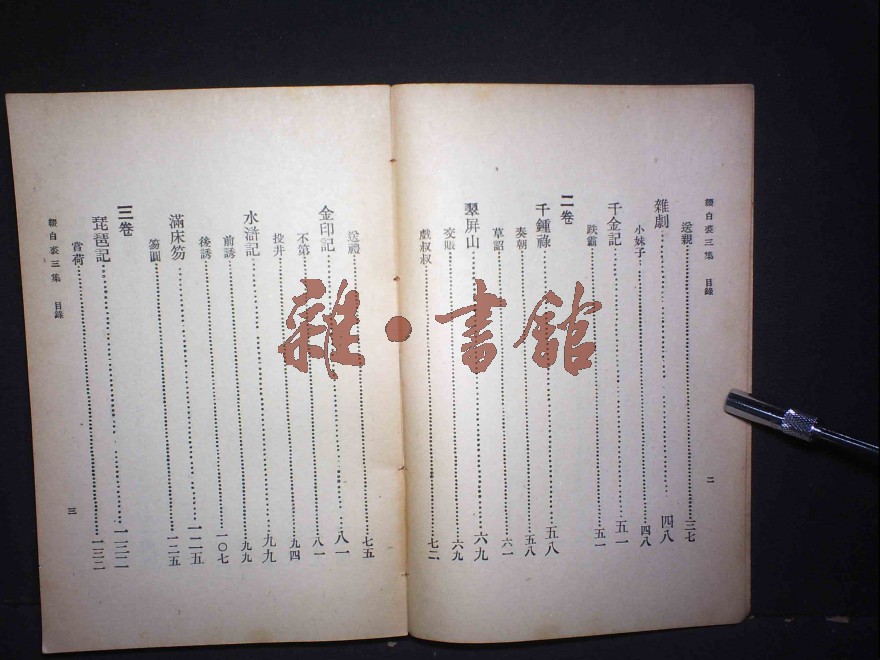 綴白裘三集 目錄
二
送親 三七
雜劇 四八
小妹子 四八
千金記 五一
跌霸 五一
二卷
千鍾祿 五八
奏朝 五八
草詔 六一
翠屏山 六九
交賬 六九
戲叔叔 七二
送禮 七五
金印記 八一
不第 八一
投井 九四
水滸記 九九
前誘 九九
後誘 一〇七
滿床笏 一二五
笏圓 一二五
三卷
琵琶記 一三三
賞荷 一三三
綴白裘三集 目錄
三
雜·書館